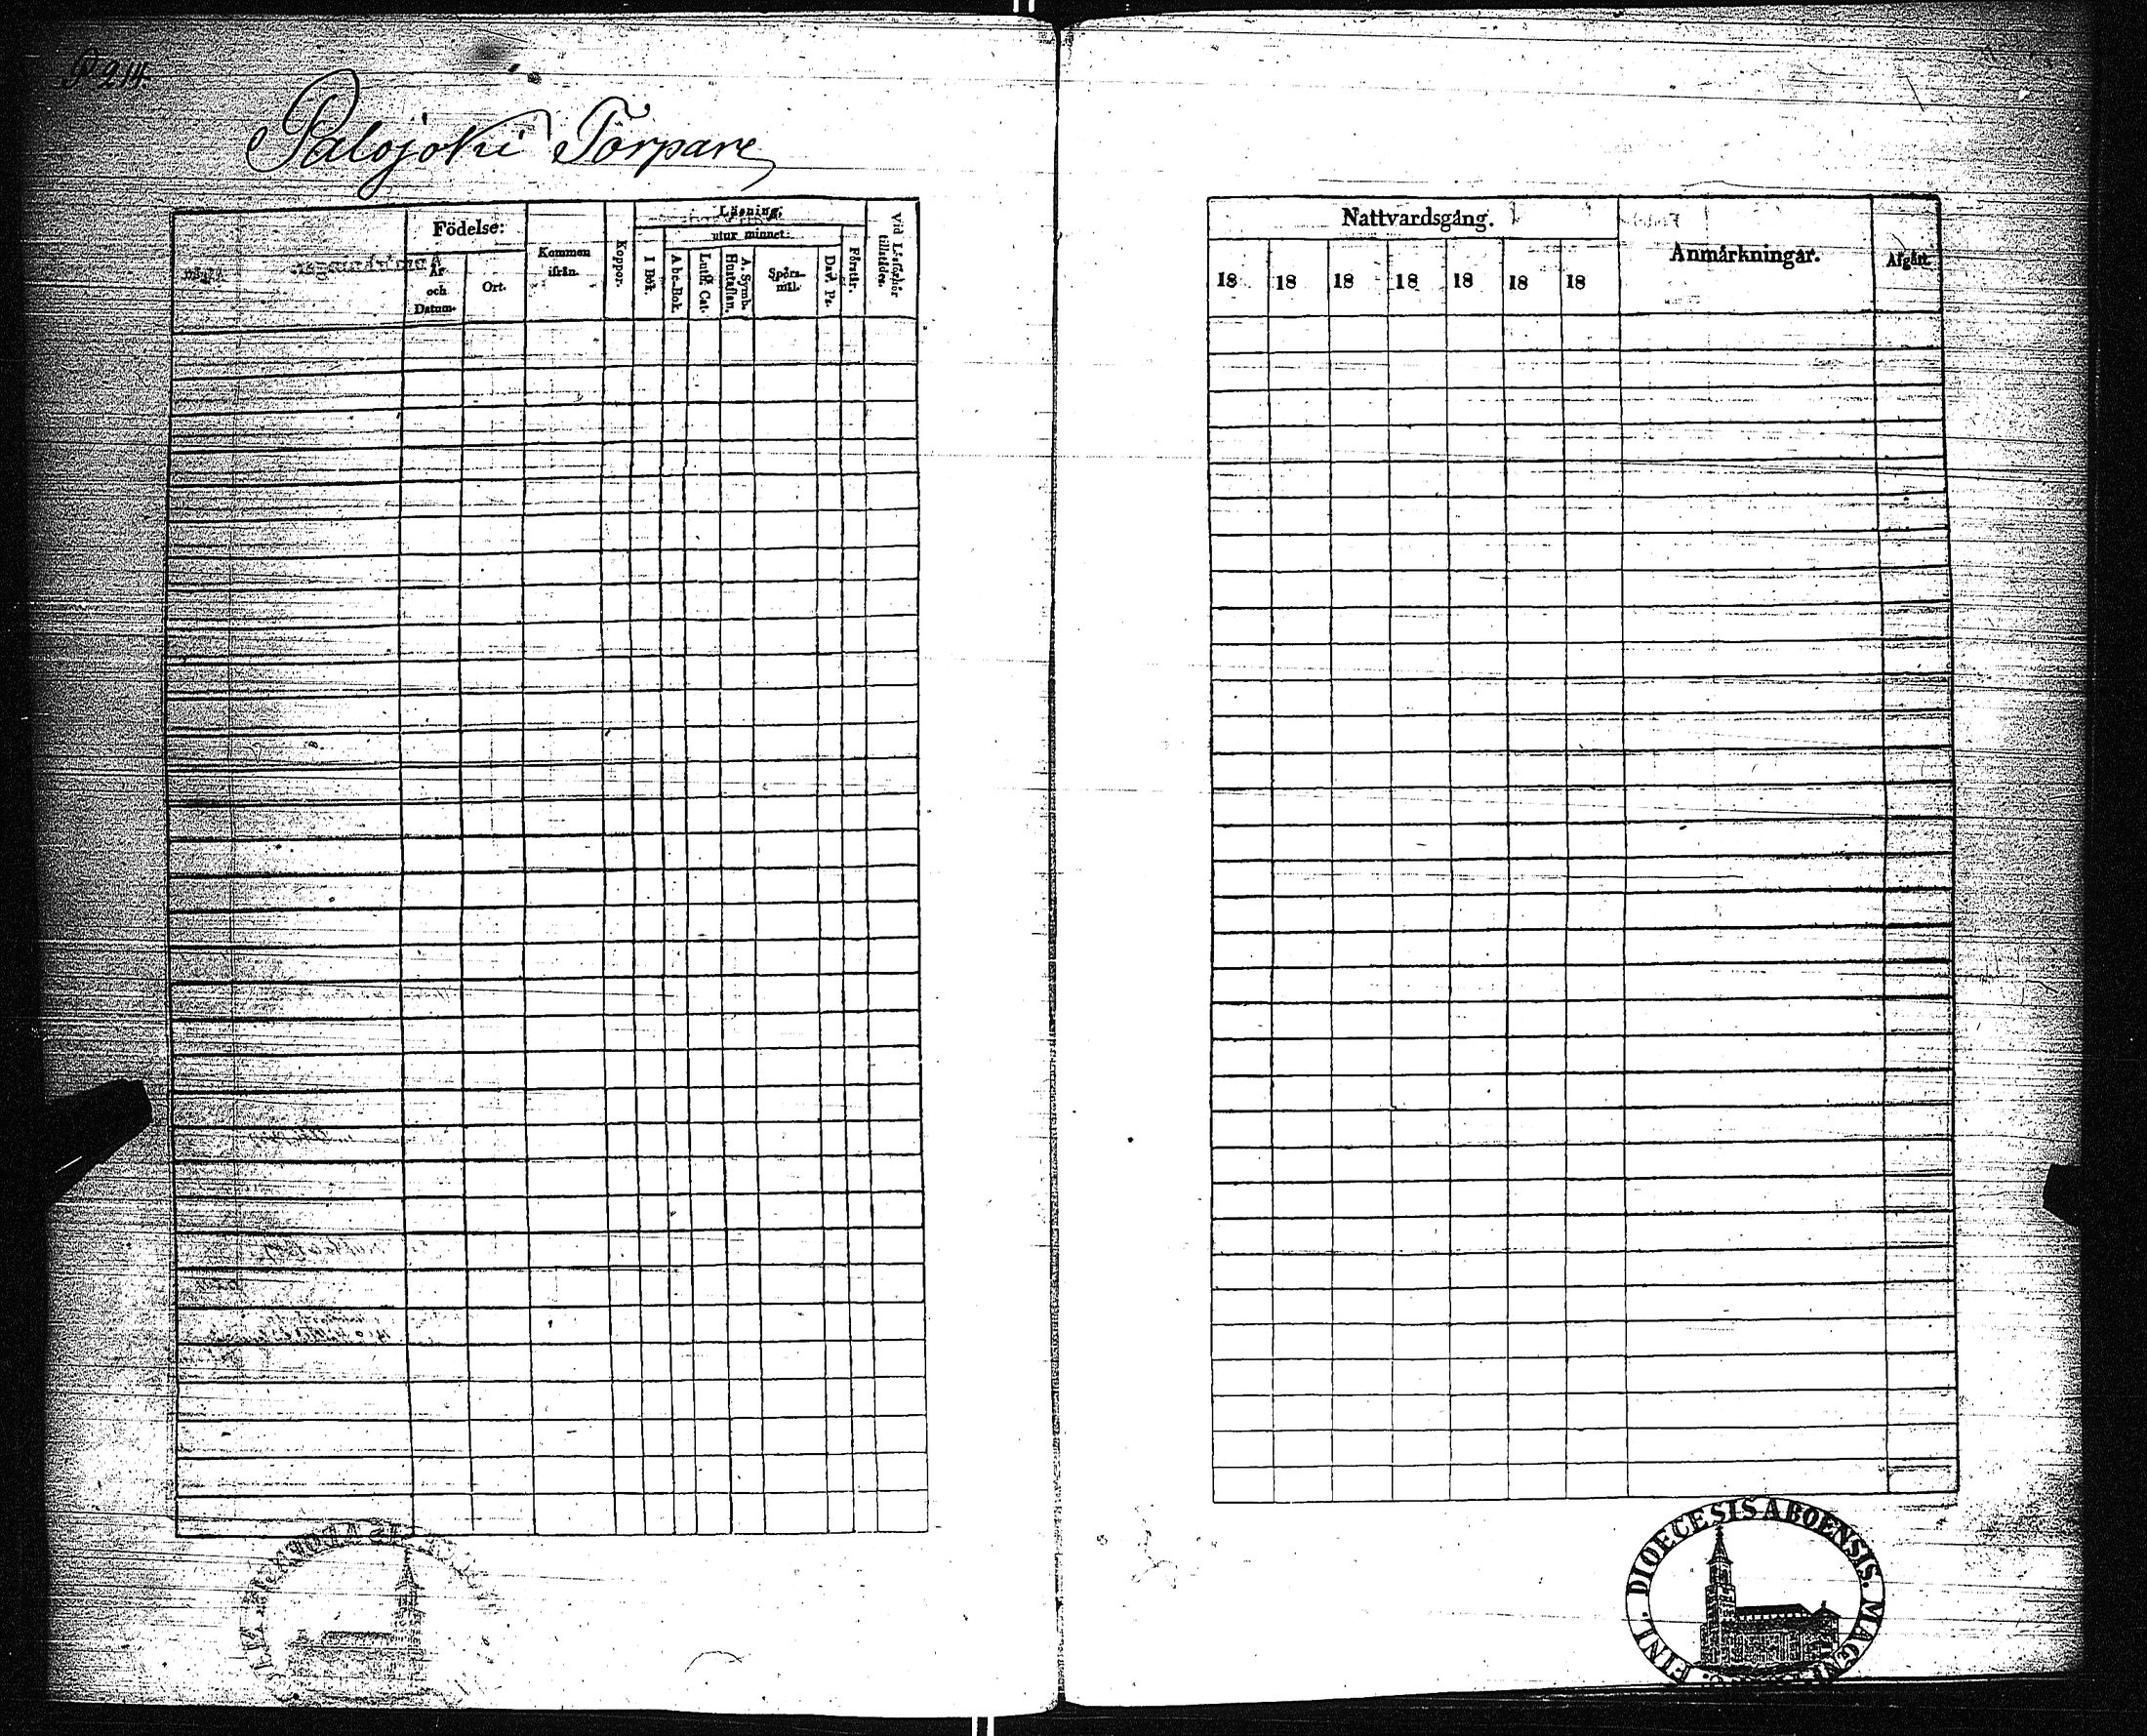 P 214.
Palojoki Torpare
Födelse:
År och Datum.
Ort.
Kommen ifrån.
Koppor.
Läsning:
utur minnet:
I Bok.
Abc-Bok.
Luth. Cat.
Hustaflan. A. Symb.
Spörs-mål.
Dav. Ps.
Förstår.
Vid Läsförhör tillstädes.
Nattvardsgång.
18 18 18 18 18 18 18
Anmärkningar.
Afgått.
FINL. DIOECESIS ABOENSIS. MAGN